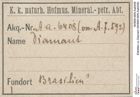 K. k. naturh. Hofmus. Mineral.-petr. Abt.
Akq.-Nr. A.a. 6408 (von A.J. 892)
Name Diamant
Fundort Brasilien